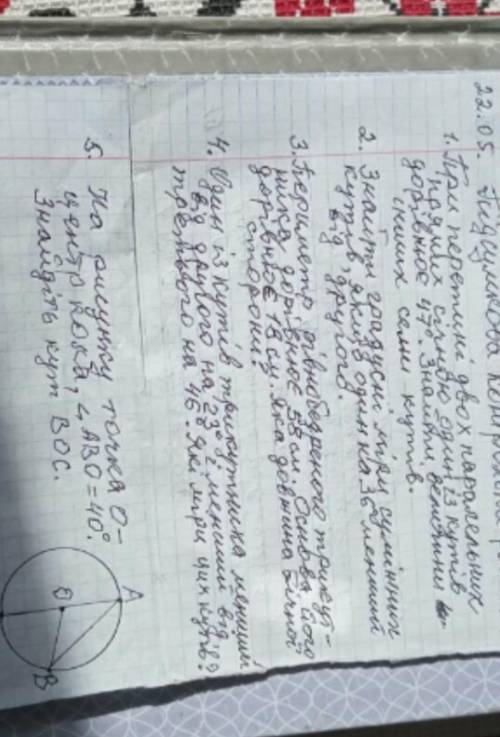 22.05. Підсумкова
1. При перетині двох паралельних
прямих січною один із кутів
дорівнює 47°. Знайти величини
інших семи кутів.
2. Знайти градусні міри суміжних
кутів, якщо один на 36° менший
від другого.
3. Периметр рівнобедреного трикут-
ника дорівнює 58 см. Основа його
дорівнює 18 см. Яка довжина бічної
сторони?
4. Один із кутів трикутника менший
від другого на 23° і менший від
третього на 46°. Які міри цих кутів?
5. На рисунку точка О-
центр кола, ∠ABO=40°.
Знайдіть кут BOC.
A
O
B